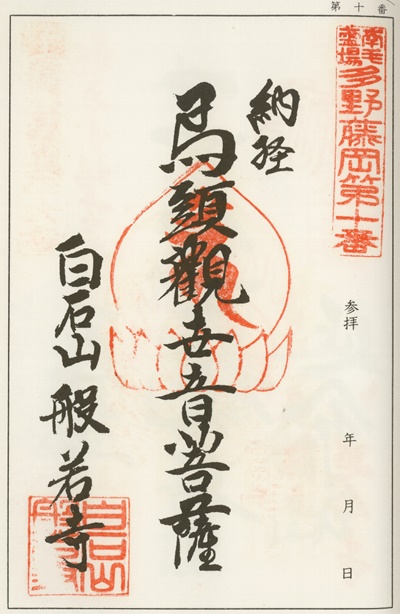 第十番
東毛
霊場
多野藤岡第十番
納経
参拝　年　月　日
馬頭觀世音菩薩
白石山般若寺